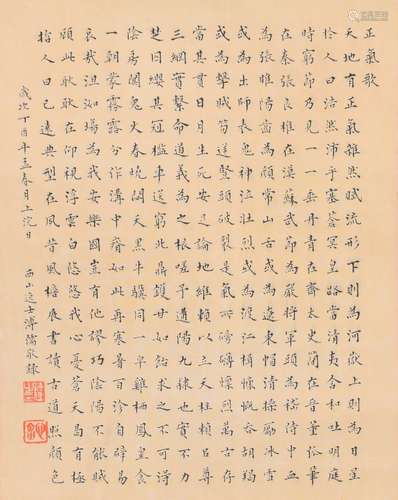 正氣歌
天地有正氣雜然賦流形下則為河嶽上則為日星
於人曰浩然沛乎塞蒼冥皇路當清夷含和吐明庭
時窮節乃見一一垂丹青在齊太史簡在晉董狐筆
在秦張良椎在漢蘇武節為嚴將軍頭為嵇侍中血
為張睢陽齒為顏常山舌或為遼東帽清操厲冰雪
或為出師表鬼神泣壯烈或為渡江楫慷慨吞胡羯
或為擊賊笏逆豎頭破裂是氣所磅礴凜烈萬古存
當其貫日月生死安足論地維賴以立天柱賴以尊
三綱實繫命道義為之根嗟予遘陽九隸也實不力
楚囚纓其冠傳車送窮北鼎鑊甘如飴求之不可得
陰房闃鬼火春院閟天黑牛驥同一皁雞棲鳳凰食
一朝蒙霧露分作溝中瘠如此再寒暑百沴自辟易
哀哉沮洳場為我安樂國豈有他謬巧陰陽不能賊
顧此耿耿在仰視浮雲白悠悠我心憂蒼天曷有極
哲人日已遠典型在夙昔風檐展書讀古道照顏色
歲次丁酉年孟春月上浣日
西山逸士溥儒敬錄